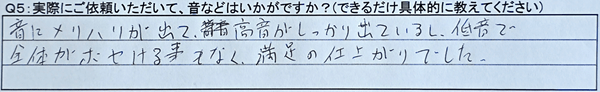 Q5:実際にご依頼いただいて、音などはいかがですか?(できるだけ具体的に教えてください)
音にメリハリが出て、高音がしっかり出ているし、低音で
全体がボヤける事もなく、満足の仕上がりでした。